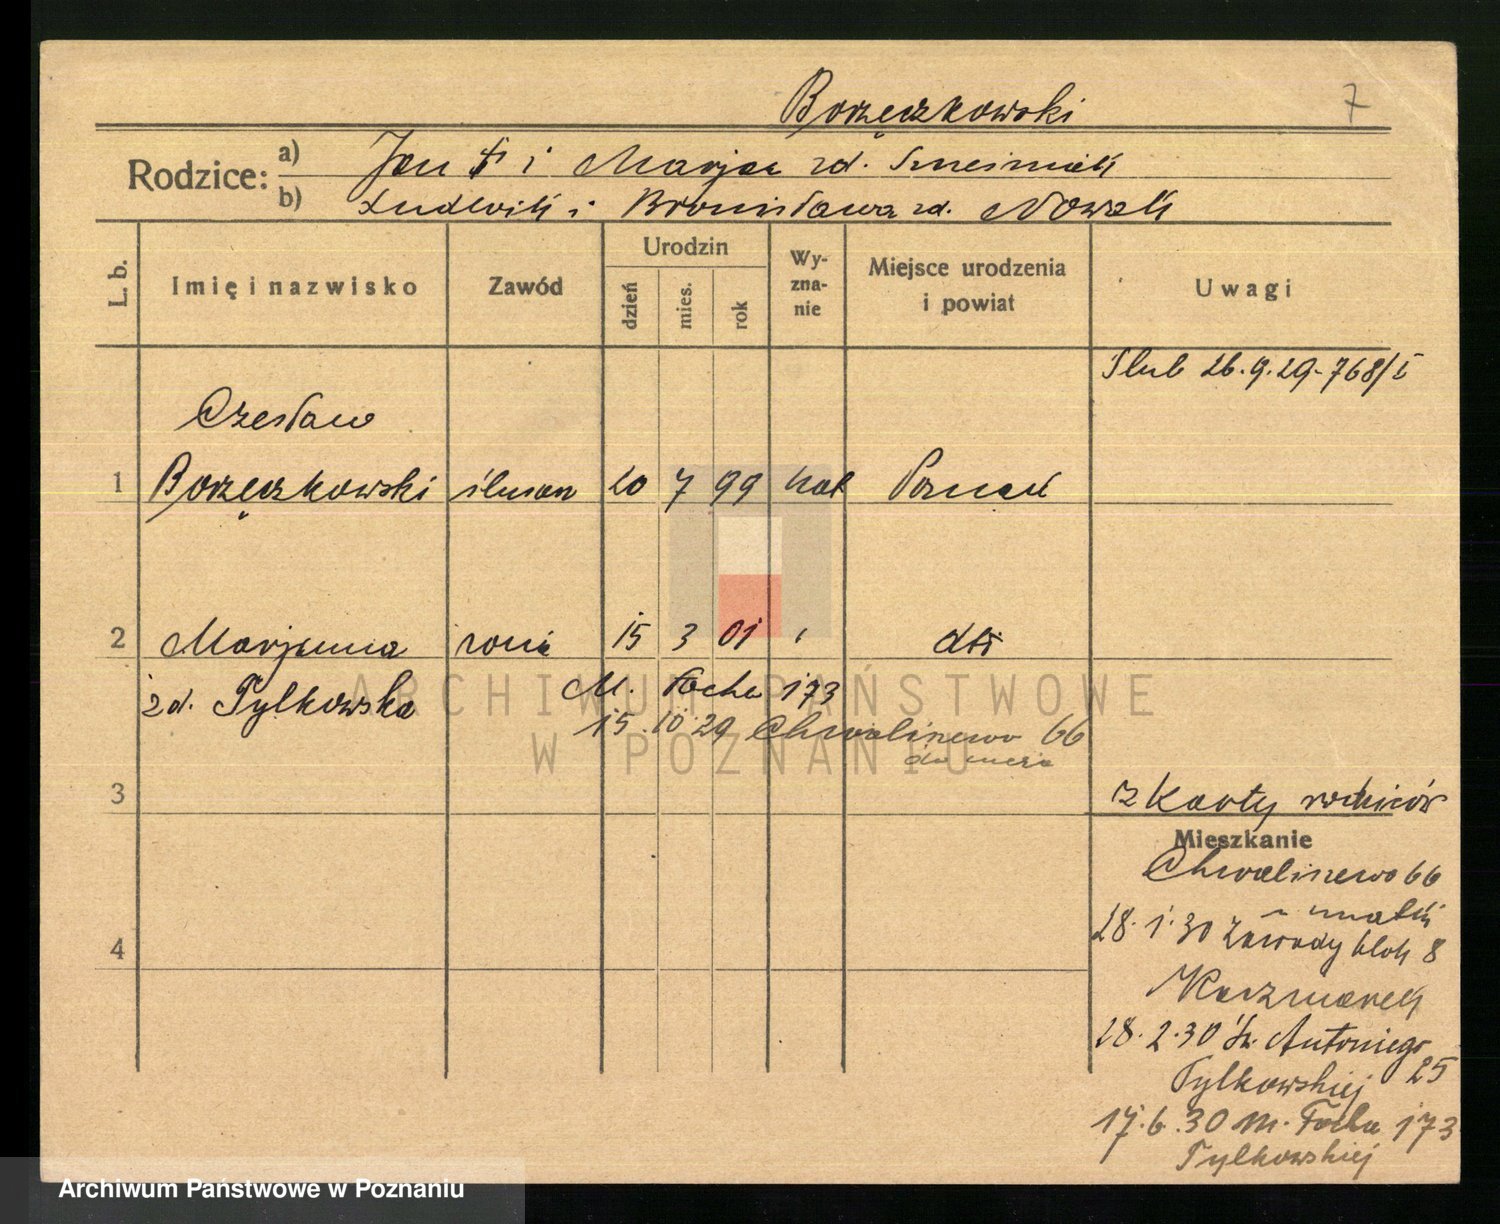 Borzęczkowski
7
Rodzice:
a) Jan † i Marja zd. Szcześniak
b) Ludwik i Bronisława zd. Nowak
L. b.
Imię i nazwisko
Zawód
Urodzin
dzień
mies.
rok
Wy-
zna-
nie
Miejsce urodzenia
i powiat
Uwagi
Slub 26.9.29-768/I
Czesław
1 Borzęczkowski ślusarz 20 7 99 kat Poznań
2 Marjanna żona 15 3 01 " dto
zd. Tylkowska
M. Focha 173
15.10.29 Chwaliszewo 66
do męża
3
z karty rodziców
Mieszkanie
Chwaliszewo 66
u matki
28.1.30 Zawady blok 8
Kaczmarek
28.2.30 Św. Antoniego
25
Tylkowskiej
17.6.30 M. Focha 173
Tylkowskiej
4
ARCHIWUM PAŃSTWOWE
W POZNANIU
Archiwum Państwowe w Poznaniu